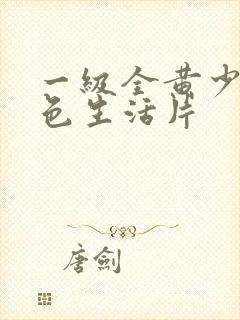 一級全黄少
色生活片
唐劍